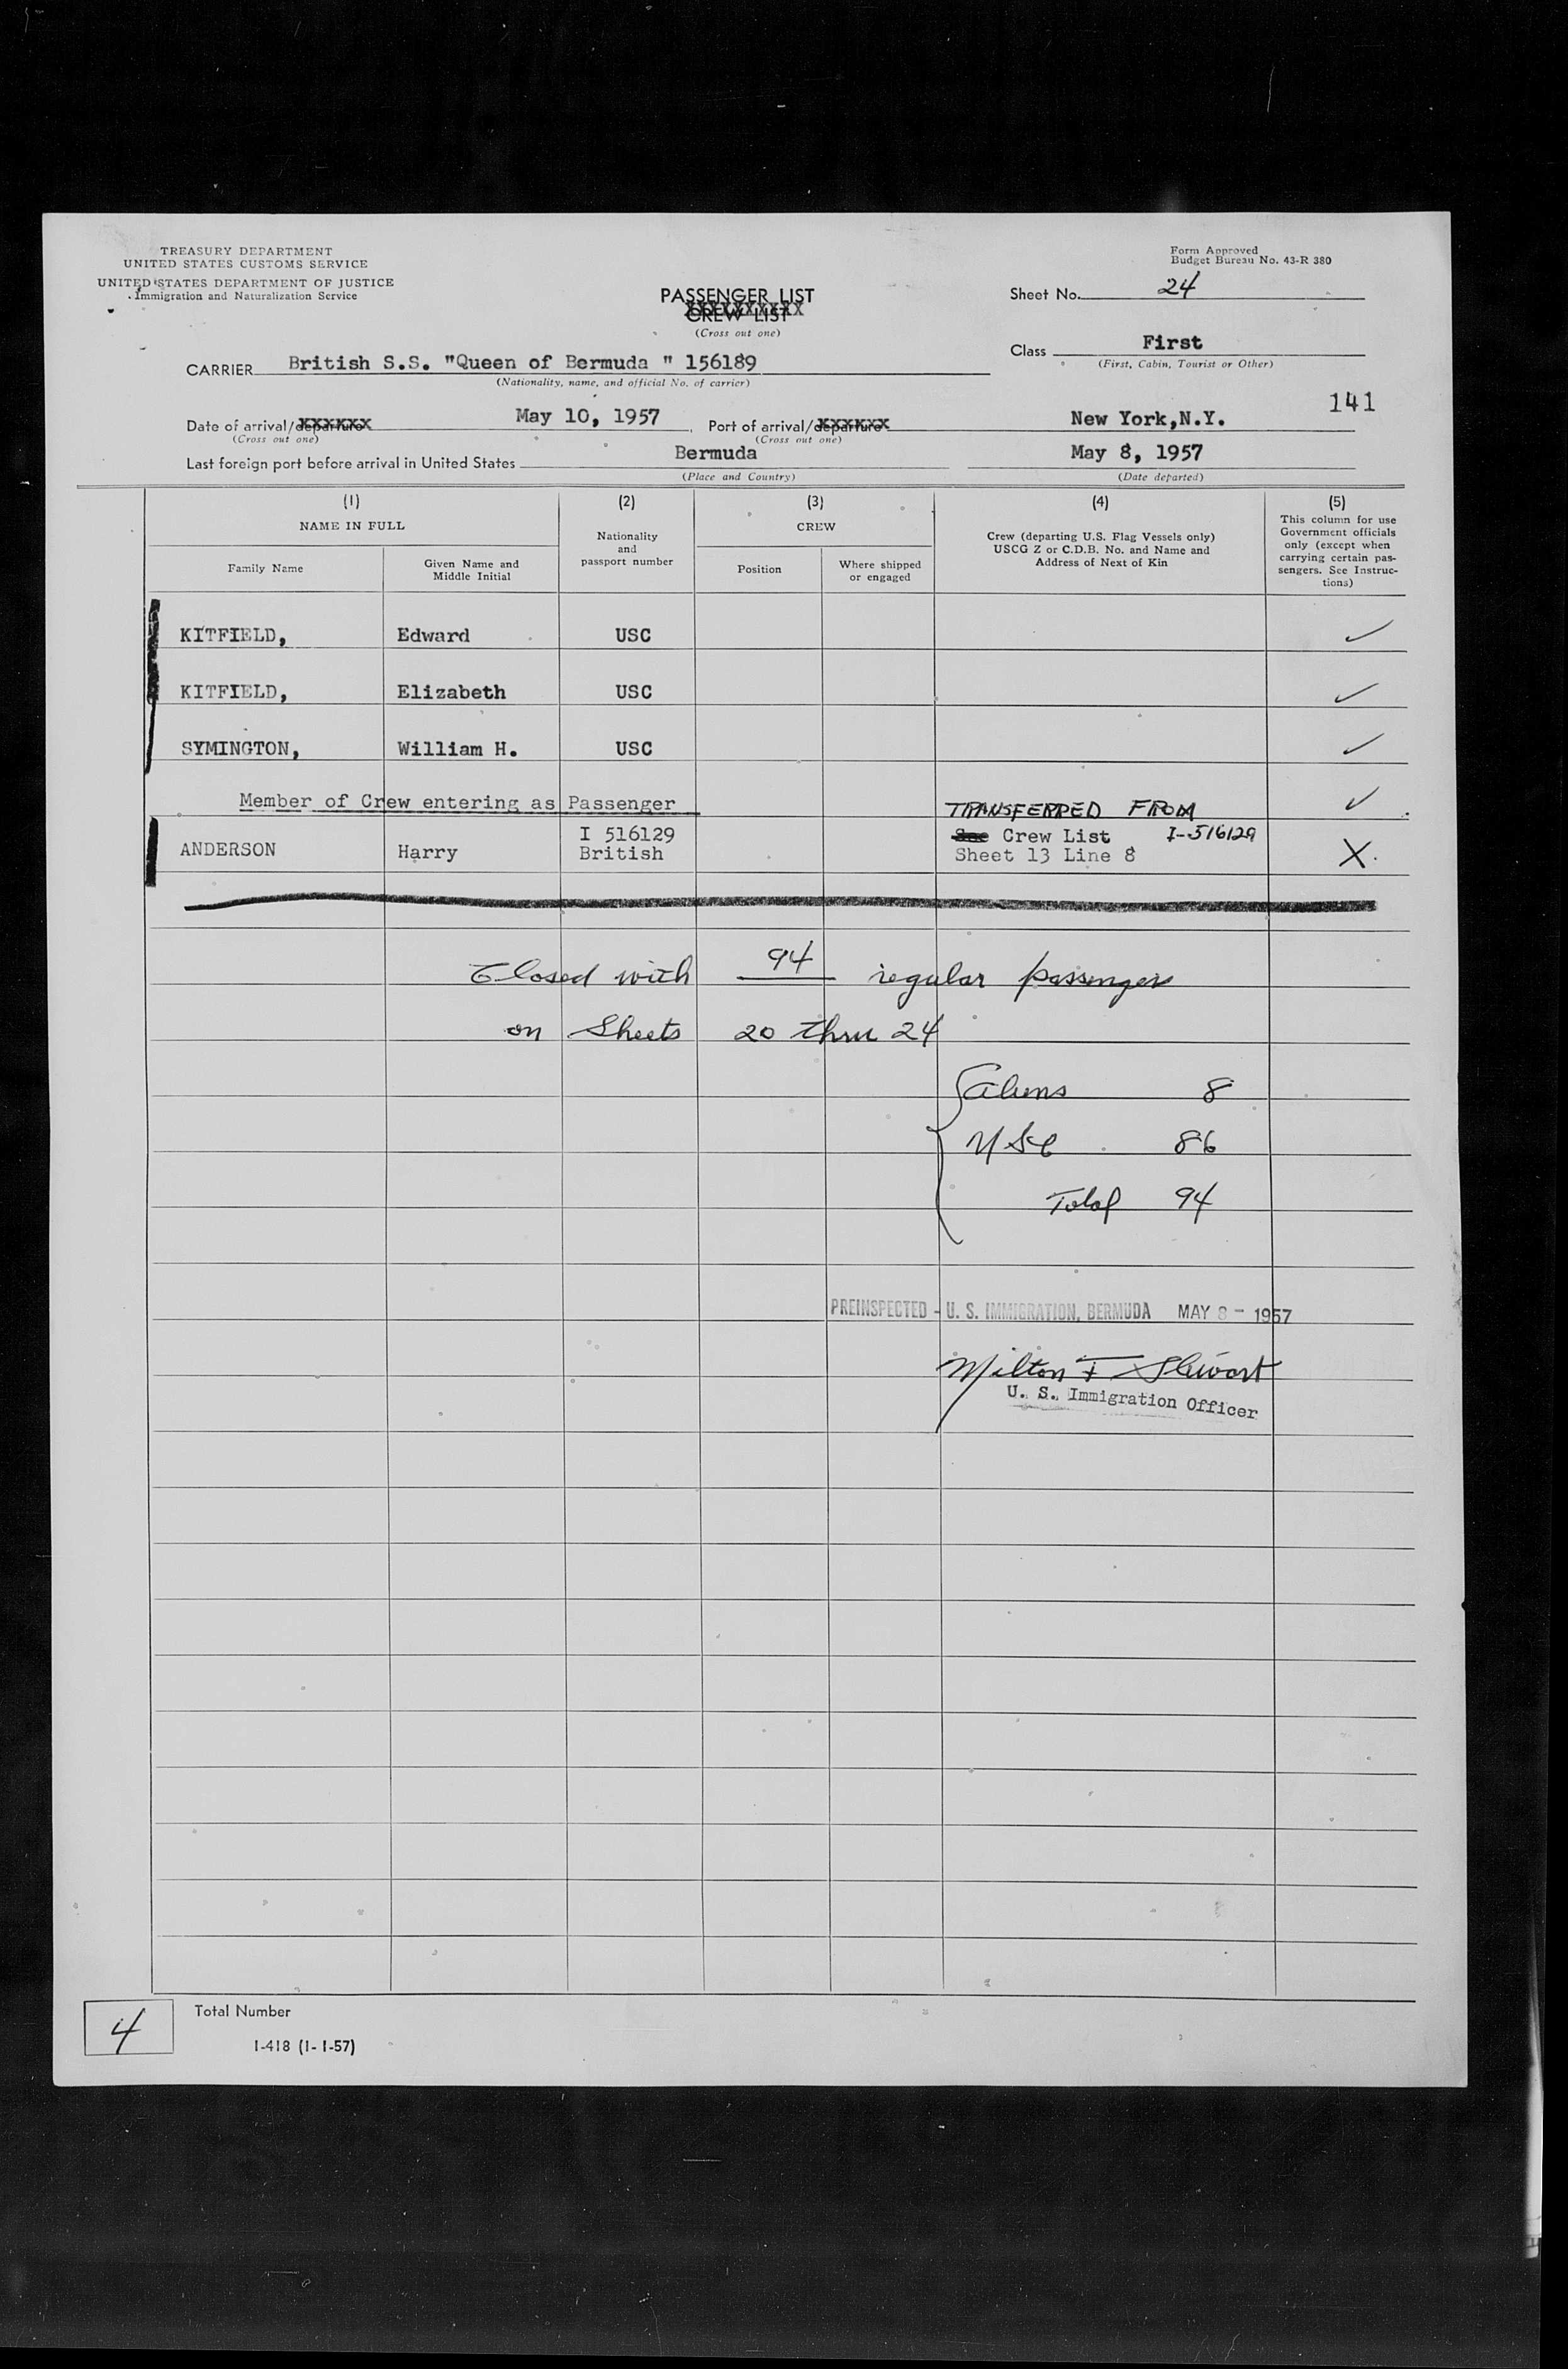 TREASURY DEPARTMENT
UNITED STATES CUSTOMS SERVICE
UNITED STATES DEPARTMENT OF JUSTICE
Immigration and Naturalization Service
Form Approved
Budget Bureau No. 43-R 380
PASSENGER LIST
CREW LIST
(Cross out one)
Sheet No. 24
CARRIER British S.S. "Queen of Bermuda " 156189
(Nationality, name, and official No. of carrier)
Class First
(First, Cabin, Tourist or Other)
141
Date of arrival/departure May 10, 1957 Port of arrival/departure New York,N.Y.
(Cross out one) (Cross out one)
Last foreign port before arrival in United States Bermuda May 8, 1957
(Place and Country) (Date departed)
(1) (2) (3) (4) (5)
NAME IN FULL
Family Name
Given Name and
Middle Initial
Nationality
and
passport number
CREW
Position
Where shipped
or engaged
Crew (departing U.S. Flag Vessels only)
USCG Z or C.D.B. No. and Name and
Address of Next of Kin
This column for use
Government officials
only (except when
carrying certain pas-
sengers. See Instruc-
tions)
KITFIELD, Edward USC ✓
KITFIELD, Elizabeth USC ✓
SYMINGTON, William H. USC ✓
Member of Crew entering as Passenger ✓
TRANSFERRED FROM
I 516129 See Crew List I-516129
ANDERSON Harry British Sheet 13 Line 8 X
Closed with 94 regular passengers
on Sheets 20 thru 24
Aliens 8
USC 86
Total 94
PREINSPECTED - U. S. IMMIGRATION, BERMUDA MAY 8 - 1957
Milton F Stewart
U. S. Immigration Officer
4 Total Number
I-418 (1-1-57)